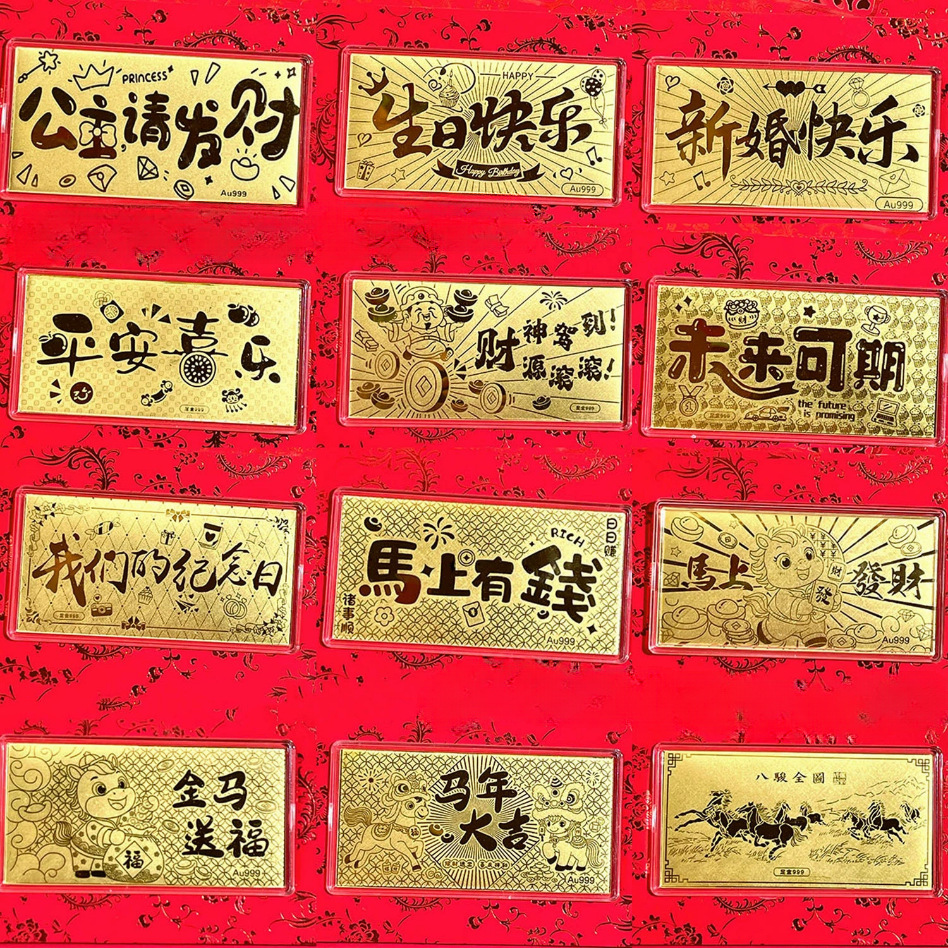 PRINCESS
公主请发财
Au999
HAPPY
生日快乐
Happy Birthday
Au999
新婚快乐
Au999
平安喜乐
足金999
财神驾到!
财源滚滚!
足金999
未来可期
the future
is promising
足金999
我们的纪念日
足金999
日日赚
RICH
馬上有錢
诸事顺
Au999
馬上
發財
財
發
Au999
金马
送福
福
Au999
马年
大吉
Au999
八駿全圖
足金999